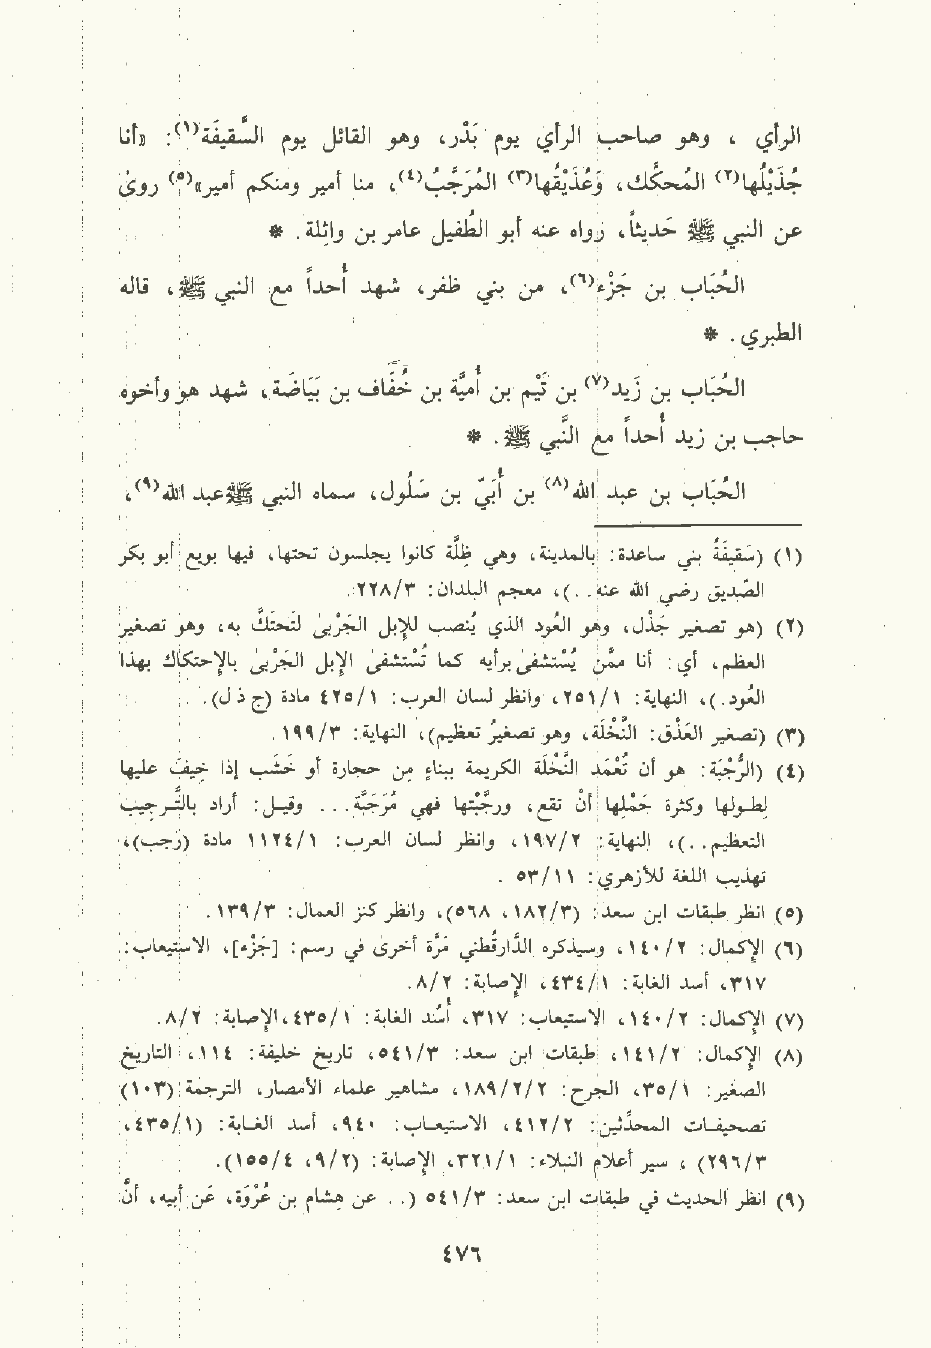 الرأي ، وهو صاحب الرأي يوم بَدْر، وهو القائل يوم السَّقيفَة(١): «أنا
جُذَيْلُها(٢) المُحكَّك، وَعُذَيْقُها(٣) المُرَجَّبُ(٤)، منا أمير ومنكم أمير»(٥) وروىٰ
عن النبي ﷺ حَديثاً، رواه عنه أبو الطُفيل عامر بن واثِلة. *
الحُبَاب بن جَزْء(٦)، من بني ظفر، شهد أُحداً مع النبي ﷺ، قاله
الطبري. *
الحُبَاب بن زَيد(٧) بن تَيْم بن أُميَّة بن خُفَاف بن بَيَاضَة، شهد هو وأخوه
حاجب بن زيد أُحداً مع النَّبي ﷺ. *
الحُبَاب بن عبد الله(٨) بن أُبَيّ بن سَلُول، سماه النبي ﷺ عبد الله(٩)،
(١) (سَقيفَةُ بني ساعدة: بالمدينة، وهي ظِلَّة كانوا يجلسون تحتها، فيها بويع أبو بكر
الصِّديق رضي الله عنه. .)، معجم البلدان: ٢٢٨/٣.
(٢) (هو تصغير جَذْل، وهو العُود الذي يُنصب للإبل الجَرْبىٰ لتَحتَكَّ به، وهو تصغير
العظم، أي: أنا مِمَّن يُسْتشفىٰ برأيه كما تُسْتشفىٰ الإبل الجَرْبىٰ بالإحتكاك بهذا
العُود.)، النهاية: ٢٥١/١، وانظر لسان العرب: ٤٢٥/١ مادة (ج ذ ل).
(٣) (تصغير العَذْق: النَّخْلَة، وهو تصغيرُ تعظيم)، النهاية: ١٩٩/٣.
(٤) (الرُّجْبَة: هو أن تُعْمَد النَّخْلة الكريمة ببناءٍ مِن حجارة أو خَشَب إذا خِيفَ عليها
لِطـولها وكثرة حَمْلِها أنْ تقع، ورجَّبْتُها فهي مُرَجَبَّة... وقيـل: أراد بالتَّـرجيب
التعظيم..)، النهاية: ١٩٧/٢، وانظر لسان العرب: ١١٢٤/١ مادة (رجب)،
تهذيب اللغة للأزهري: ٥٣/١١.
(٥) انظر طبقات ابن سعد: (١٨٢/٣، ٥٦٨)، وانظر كنز العمال: ١٣٩/٣.
(٦) الإكمال: ١٤٠/٢، وسيذكره الدَّارقُطني مَرَّة أخرىٰ في رسم: [جَزْء]، الاستيعاب:
٣١٧، أسد الغابة: ٤٣٤/١، الإصابة: ٨/٢.
(٧) الإكمال: ١٤٠/٢، الاستيعاب: ٣١٧، أُسْد الغابة: ٤٣٥/١، الإصابة: ٨/٢.
(٨) الإكمال: ١٤١/٢، طبقات ابن سعد: ٥٤١/٣، تاريخ خليفة: ١١٤، التاريخ
الصغير: ٣٥/١، الجرح: ١٨٩/٢/٢، مشاهير علماء الأمصار، الترجمة (١٠٣)
تصحيفـات المحدِّثين: ٤١٢/٢، الاستيعـاب: ٩٤٠، أسد الغـابة: (٤٣٥/١،
٢٩٦/٣) ، سير أعلام النبلاء: ٣٢١/١، الإصابة: (٩/٢، ١٥٥/٤).
(٩) انظر الحديث في طبقات ابن سعد: ٥٤١/٣ (. . عن هِشام بن عُرْوَة، عَن أبيه، أنَّ
٤٧٦